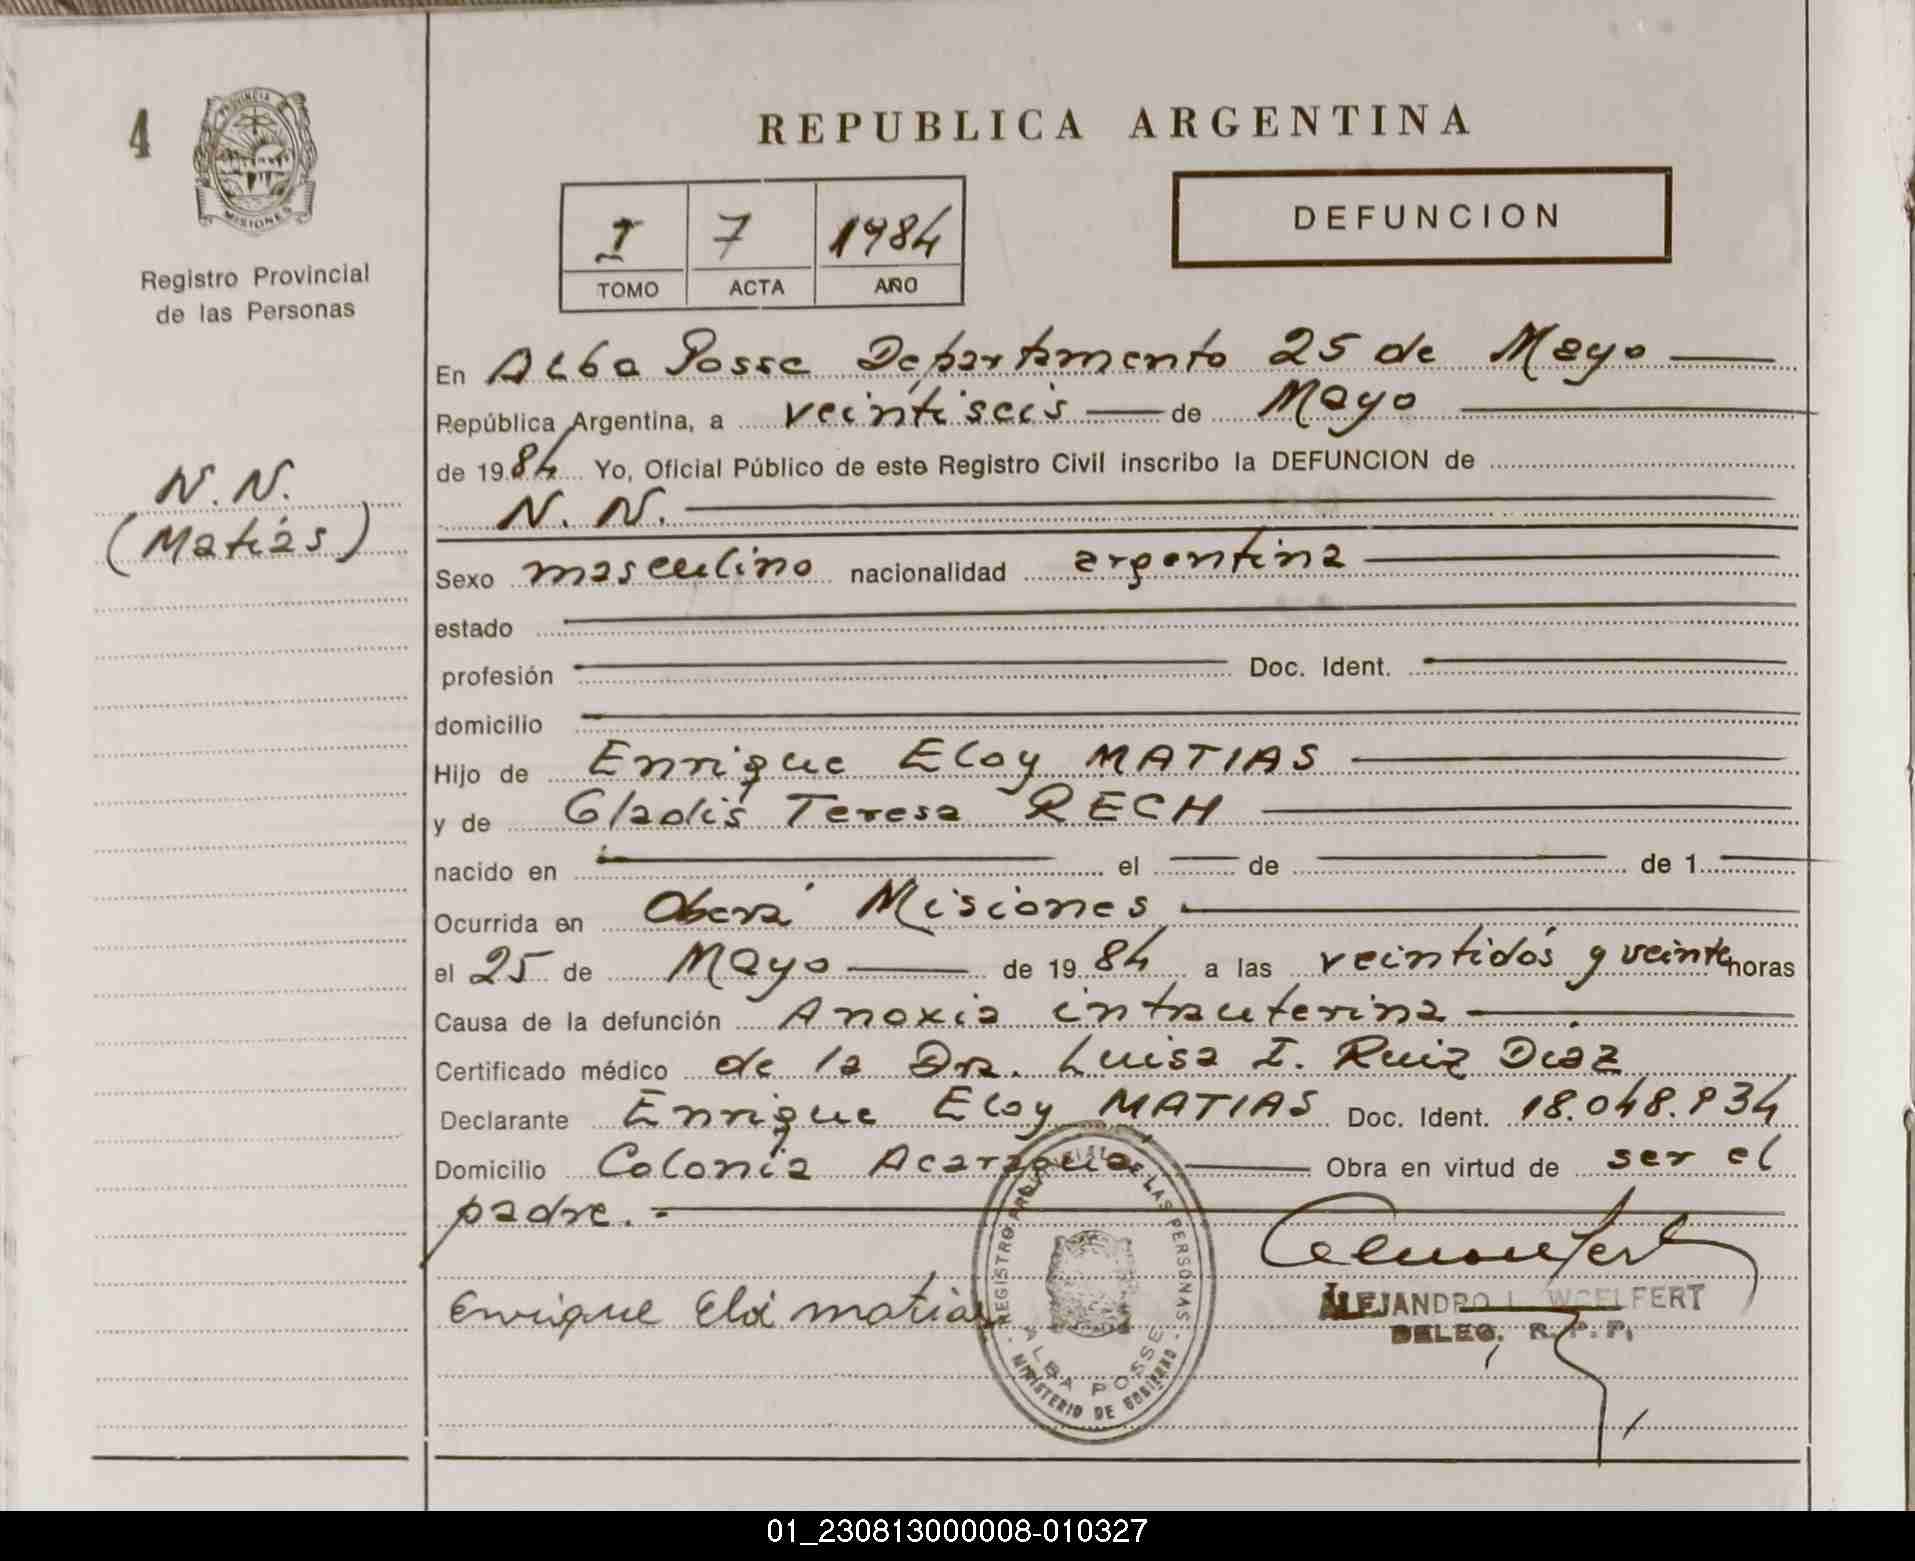 4
PROVINCIA DE
MISIONES
Registro Provincial
de las Personas
N. N.
(Matías)
REPUBLICA ARGENTINA
I 7 1984
TOMO ACTA AÑO
DEFUNCION
En Alba Posse Departamento 25 de Mayo
República Argentina, a veintiseis de Mayo
de 1984 Yo, Oficial Público de este Registro Civil inscribo la DEFUNCION de
N. N.
Sexo masculino nacionalidad argentina
estado
profesión Doc. Ident.
domicilio
Hijo de Enrique Eloy MATIAS
y de Gladis Teresa RECH
nacido en el de de 1
Ocurrida en Oberá Misiones
el 25 de Mayo de 1984 a las veintidós y veinte horas
Causa de la defunción Anoxia intrauterina
Certificado médico de la Dra. Luisa I. Ruiz Diaz
Declarante Enrique Eloy MATIAS Doc. Ident. 18.048.934
Domicilio Colonia Acaragua Obra en virtud de ser el
padre.-
Enrique Eloi matias
REGISTRO PROVINCIAL DE LAS PERSONAS
ALBA POSSE
MINISTERIO DE GOBIERNO
ALEJANDRO L. WOELFERT
DELEG. R. P. P.
01_230813000008-010327